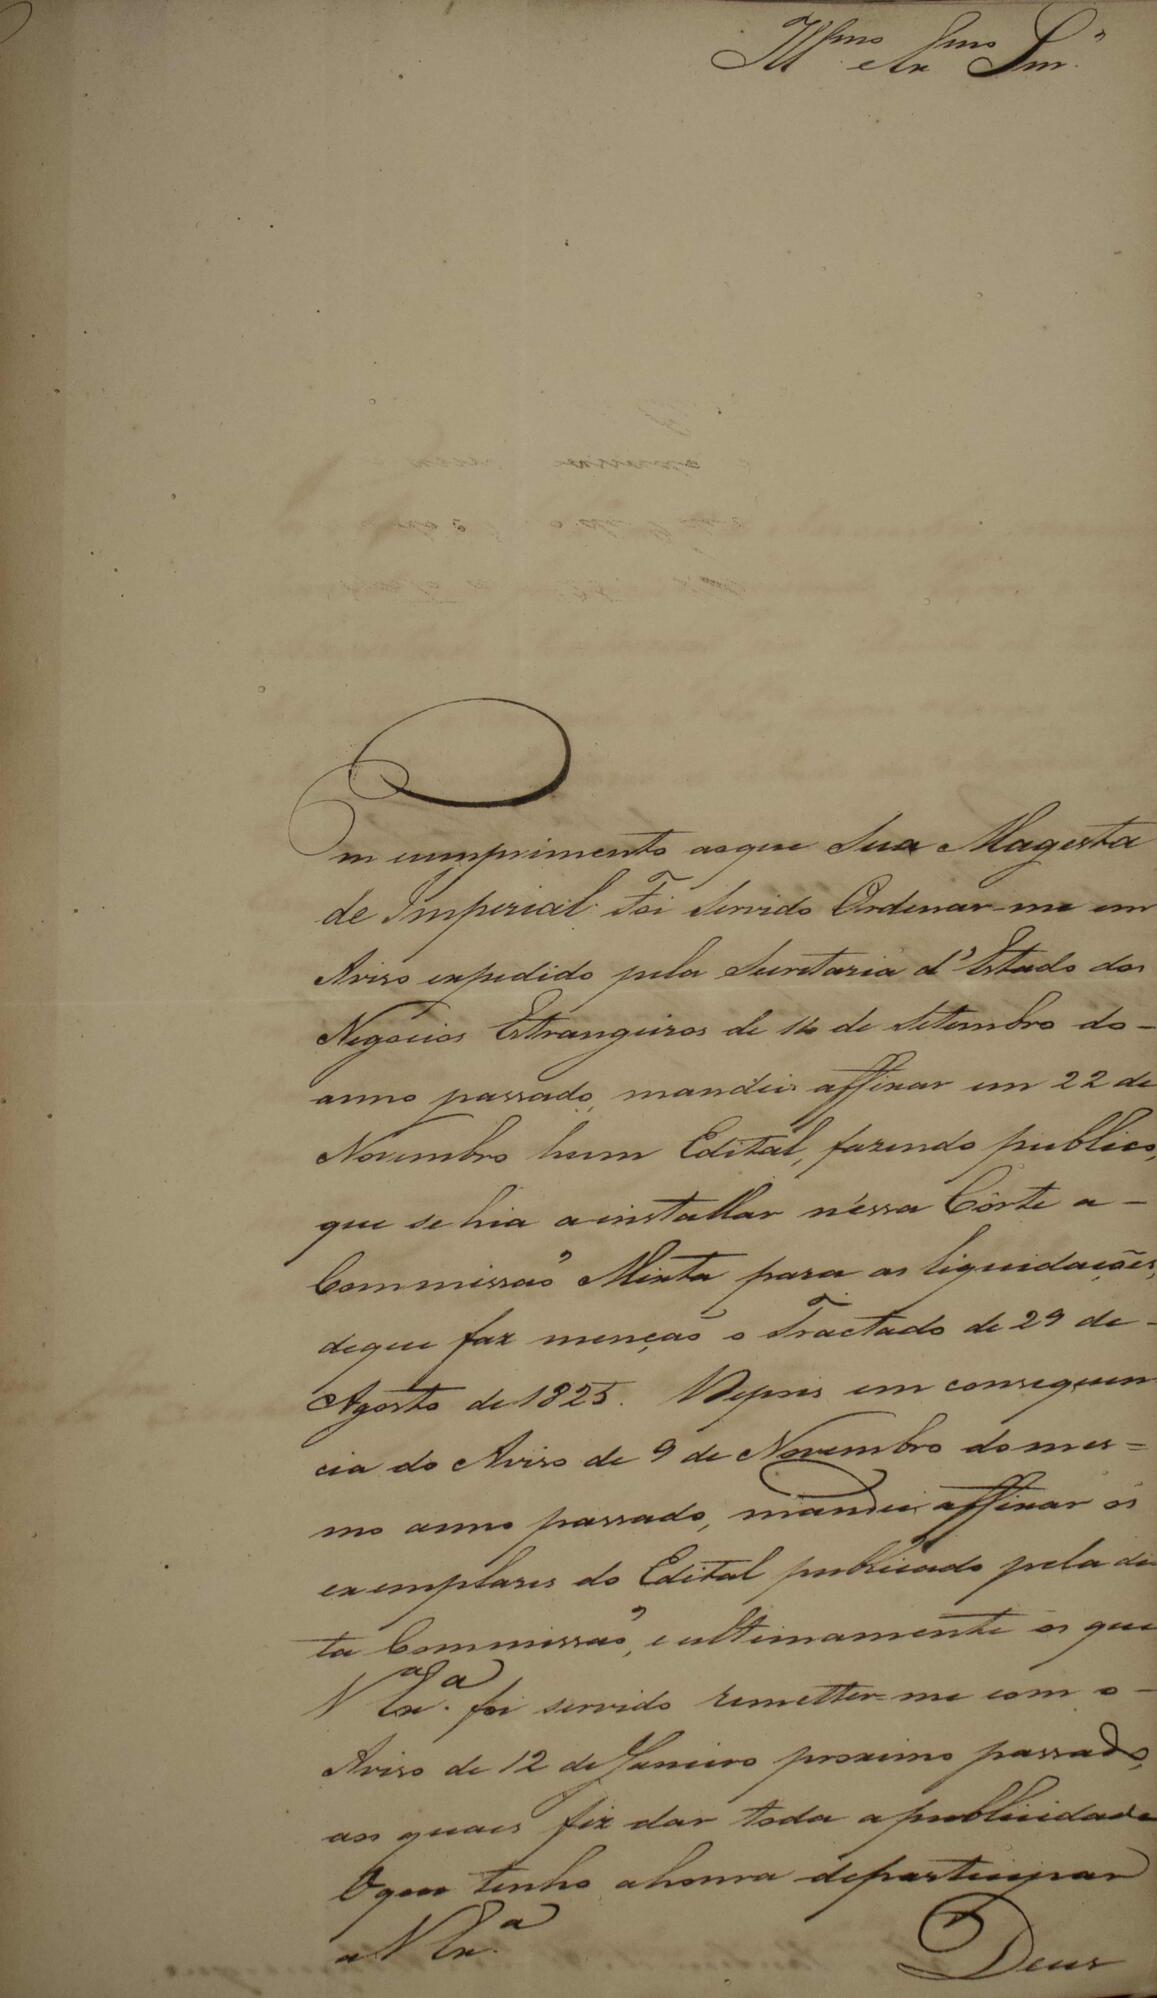 Illmo Exmo Snr.
Em cumprimento ao que Sua Magesta
de Imperial Foi Servido Ordenar-me em
Aviso expedido pela Secretaria d'Estado dos
Negocios Estrangeiros de 14 de Setembro do-
anno passado, mandei affixar em 22 de
Novembro hum Edital, fazendo publico,
que se hia a installar n'essa Côrte a-
Commissão Mixta para as liquidações,
de que faz menção o Tractado de 29 de-
Agosto de 1825. Depois em consequen
cia do Aviso de 9 de Novembro do mes=
mo anno passado, mandei affixar os
exemplares do Edital publicado pela di
ta Commissão, e ultimamente os que
V Exa. foi servido remetter-me com o-
Aviso de 12 de Janeiro proximo passado,
aos quaes fiz dar toda a publicidade
O que tenho a honra de participar
a V Exa.
Deus